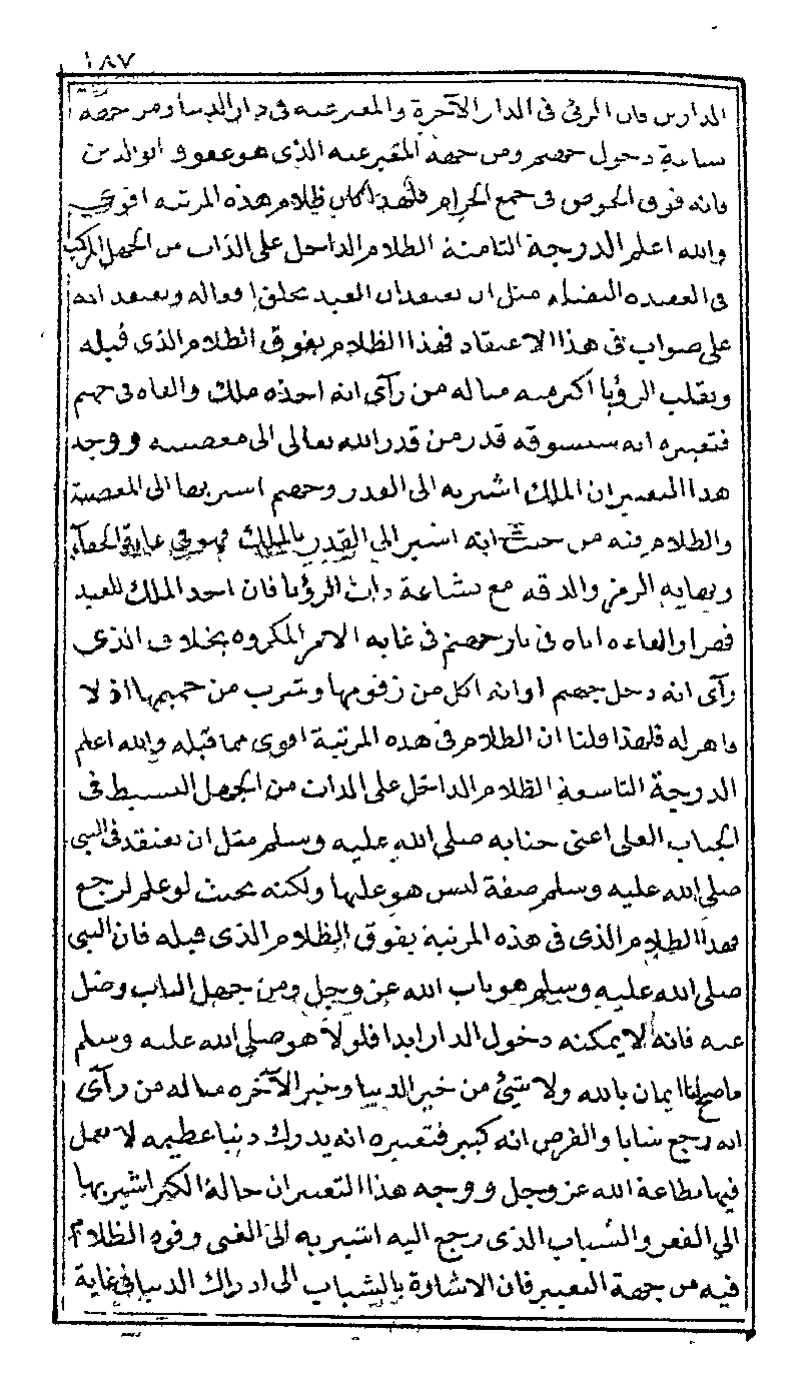 ١٨٧
الدارين فان المرئى فى الدار الآخرة والمعبر عنه فى دار الدنيا ومن جهة
بشاعة دخول جهنم ومن جهة المعبر عنه الذى هو عقوق الوالدين
فانه فوق الخوض فى جمع الحرام فلهذا كان ظلام هذه المرتبة اقوى
والله اعلم الدرجة الثامنة الظلام الداخل على الذات من الجهل المركب
فى العقيدة مثل ان يعتقد ان العبد يخلق افعاله ويعتقد انه
على صواب فى هذا الاعتقاد فهذا الظلام يفوق الظلام الذى قبله
ويقلب الرؤيا اكثر منه مثاله من رآى انه اخذه ملك والقاه فى جهنم
فتعبيره انه سيسوقه قدر من قدر الله تعالى الى معصيته ووجه
هذا التعبير ان الملك اشير به الى القدر وجهنم اشير بها الى المعصية
والظلام فيه من حيث انه اشير الى القدر بالملك فهو فى غاية الخفاء
ونهاية الرمز والدقة مع بشاعة ذات الرؤيا فان اخذ الملك للعبد
قهرا والقاءه اياه فى نار جهنم فى غاية الامر المكروه بخلاف الذى
رآى انه دخل جهنم او انه اكل من زقومها وشرب من حميمها اذ لا
قاهر له فلهذا قلنا ان الظلام فى هذه المرتبة اقوى مما قبله والله اعلم
الدرجة التاسعة الظلام الداخل على الذات من الجهل البسيط فى
الجناب العلى اعنى جنابه صلى الله عليه وسلم مثل ان يعتقد فى النبى
صلى الله عليه وسلم صفة ليس هو عليها ولكنه بحيث لو علم لرجع
فهذا الظلام الذى فى هذه المرتبة يفوق الظلام الذى قبله فان النبى
صلى الله عليه وسلم هو باب الله عز وجل ومن جهل الباب وضل
عنه فانه لا يمكنه دخول الدار ابدا فلولا هو صلى الله عليه وسلم
ما صح لنا ايمان بالله ولا شئ من خير الدنيا وخير الآخرة مثاله من رآى
انه رجع شابا والفرض انه كبير فتعبيره انه يدرك دنيا عظيمة لا يعمل
فيها بطاعة الله عز وجل ووجه هذا التعبير ان حالة الكبر اشير بها
الى الفقر والشباب الذى رجع اليه اشير به الى الغنى وقوة الظلام
فيه من جهة التعبير فان الاشارة بالشباب الى ادراك الدنيا فى غاية